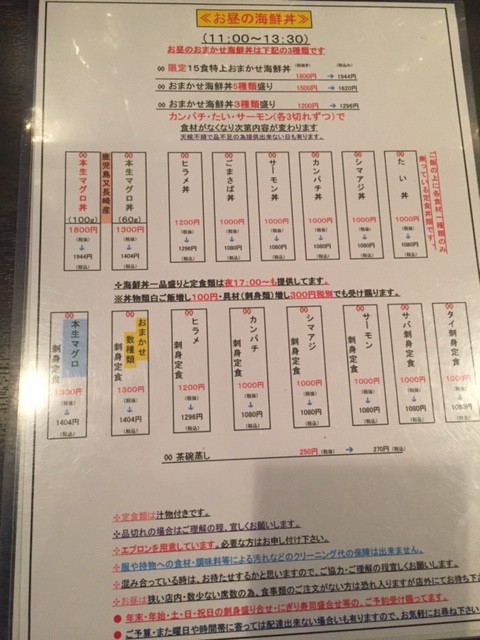 ≪お昼の海鮮丼≫
(11:00~13:30)
お昼のおまかせ海鮮丼は下記の3種類です
◊◊ 限定15食特上おまかせ海鮮丼 (税抜き) 1800円 → (税込み) 1944円
◊◊ おまかせ海鮮丼5種類盛り 1500円 → 1620円
◊◊ おまかせ海鮮丼3種類盛り 1200円 → 1296円
カンパチ・たい・サーモン(各3切れずつ)で
食材がなくなり次第内容が変わります
天候不順で品不足の為提供出来ない日も有ります。
ご飯の上に各食材一種類のみ
乗っている定食丼類です。
◊◊ たい丼 1000円 (税抜) ↓ 1080円 (税込)
◊◊ シマアジ丼 1000円 (税抜) ↓ 1080円 (税込)
◊◊ カンパチ丼 1000円 (税抜) ↓ 1080円 (税込)
◊◊ サーモン丼 1000円 (税抜) ↓ 1080円 (税込)
◊◊ ごまさば丼 1000円 (税抜) ↓ 1080円 (税込)
◊◊ ヒラメ丼 1200円 (税抜) ↓ 1296円 (税込)
◊◊ 本生マグロ丼 (60g) 1300円 (税抜) ↓ 1404円 (税込)
鹿児島又長崎産
◊◊ 本生マグロ丼 (100g) 1800円 (税抜) ↓ 1944円 (税込)
⊹海鮮丼一品盛りと定食類は夜17:00~も提供してます。
※丼物類白ご飯増し100円・具材(刺身類)増し300円税別でも受け賜ります。
◊◊ タイ刺身定食 1000円 (税抜) ↓ 1080円 (税込)
◊◊ サバ刺身定食 1000円 (税抜) ↓ 1080円 (税込)
◊◊ サーモン刺身定食 1000円 (税抜) ↓ 1080円 (税込)
◊◊ シマアジ刺身定食 1000円 (税抜) ↓ 1080円 (税込)
◊◊ カンパチ刺身定食 1000円 (税抜) ↓ 1080円 (税込)
◊◊ ヒラメ刺身定食 1200円 (税抜) ↓ 1296円 (税込)
◊◊ おまかせ数種類刺身定食 1300円 (税抜) ↓ 1404円 (税込)
◊◊ 本生マグロ刺身定食 1300円 (税抜) ↓ 1404円 (税込)
◊◊ 茶碗蒸し 250円 (税抜) → 270円 (税込)
⊹定食類は汁物付きです。
⊹品切れの場合はご理解の程、宜しくお願いします。
⊹エプロンを用意しています。必要な方はお申し付け下さい。
⊹服や持物への食材・調味料等による汚れなどのクリーニング代の保障は出来ません。
⊹混み合っている時は、お待たせするかと思いますので、ご協力・ご理解の程宜しくお願いします。
⊹お昼は狭い店内・数少ない席数の為、食事類のご注文がない方は恐れ入りますが店外にてお待ち下
● 年末・年始・土・日・祝日の刺身盛り合せ・にぎり寿司盛合せ等の、ご予約受け賜ってます。
● ご予算・また曜日や時間帯に寄っては配達出来ない場合いも有りますので、お気軽にお尋ね下さい